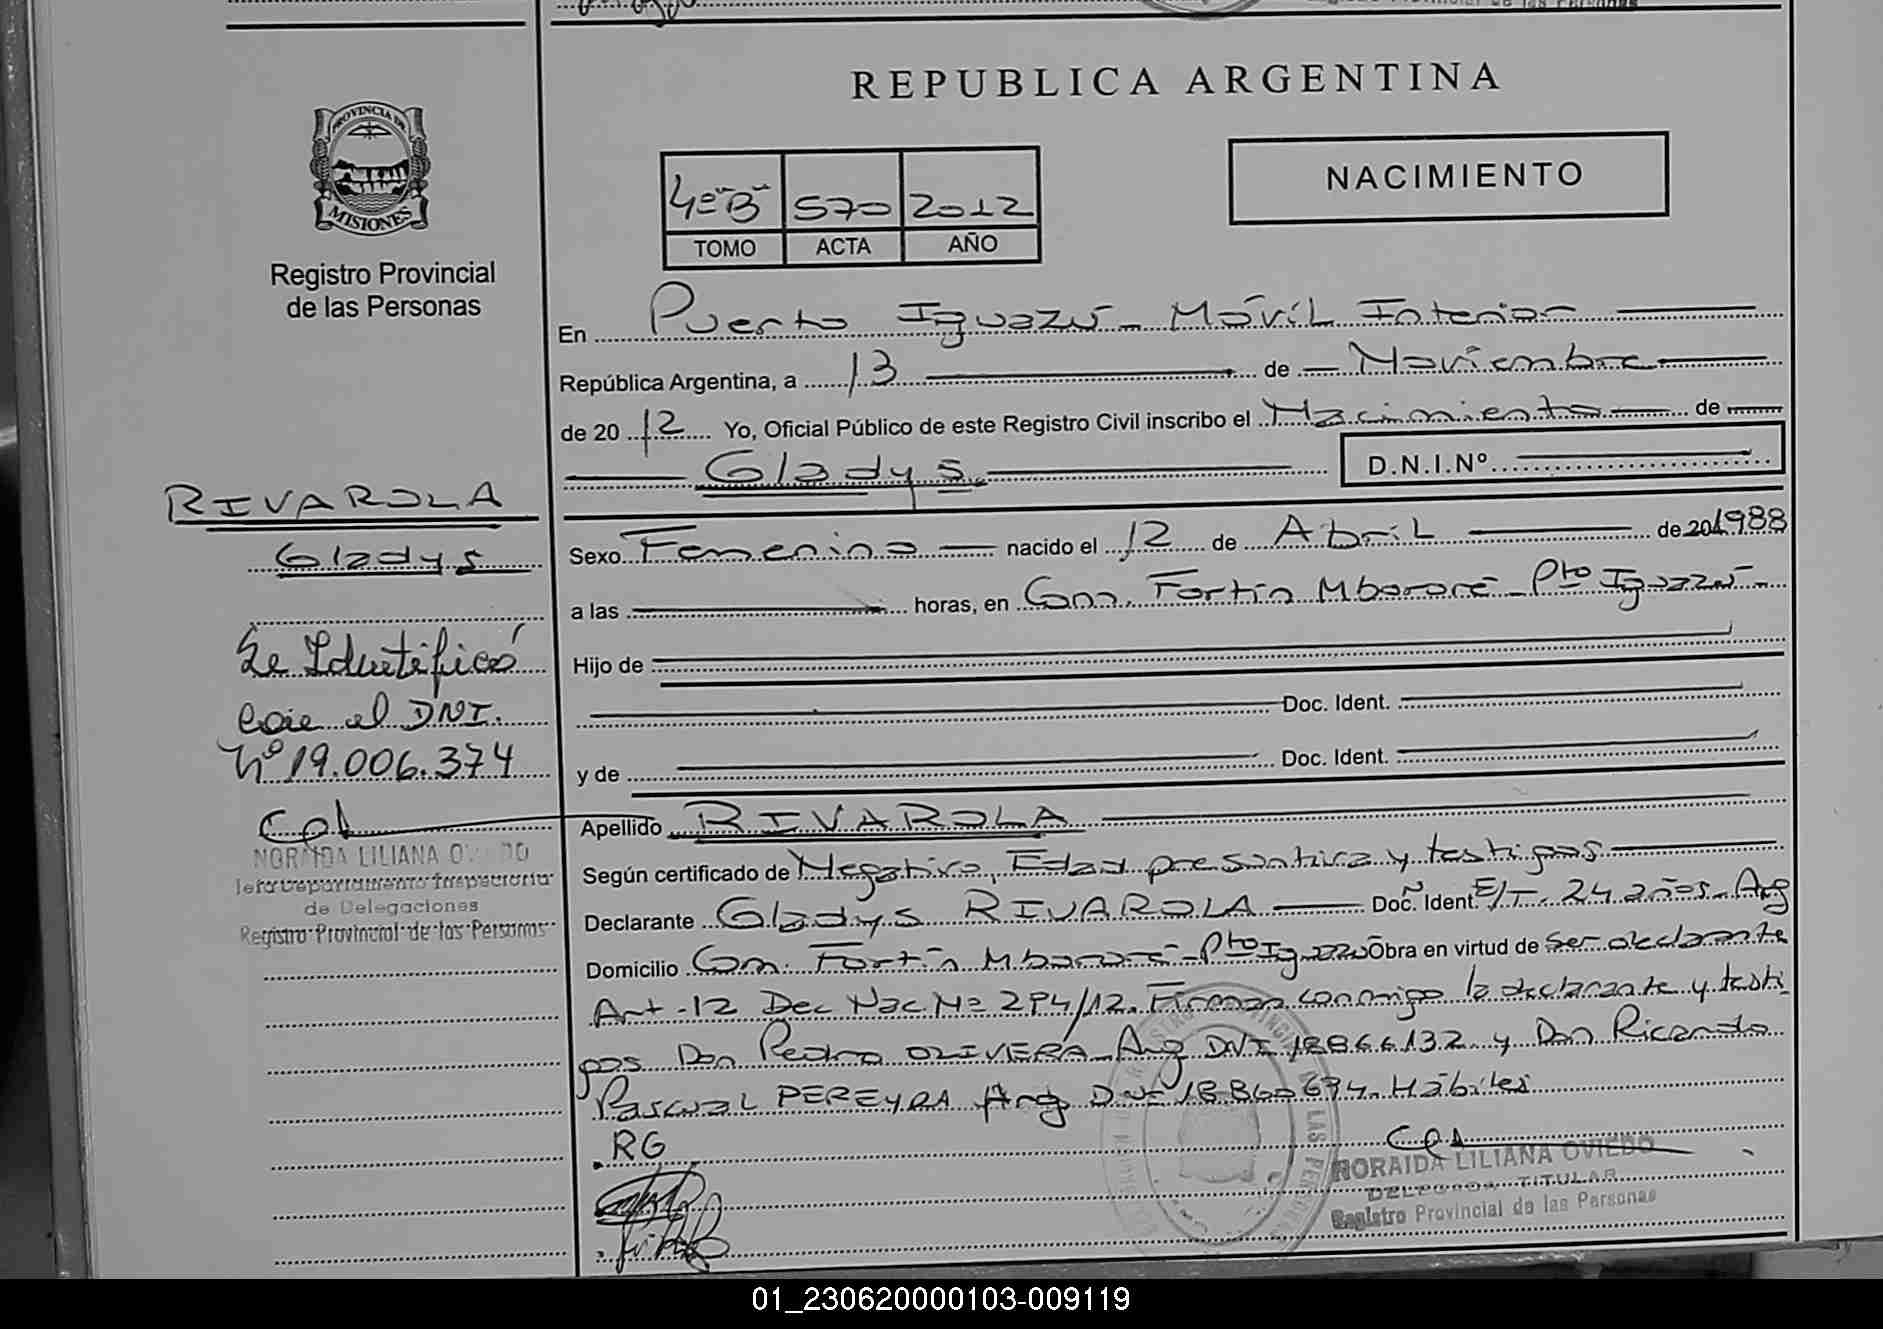 REPUBLICA ARGENTINA
PROVINCIA DE
MISIONES
Registro Provincial
de las Personas
NACIMIENTO
4º "B" 570 2012
TOMO ACTA AÑO
En Puerto Iguazú - Móvil Interior
República Argentina, a 13 de Noviembre
de 2012 Yo, Oficial Público de este Registro Civil inscribo el Nacimiento de
Gladys D.N.I.Nº
RIVAROLA
Gladys
Se Identificó
con el DNI.
Nº 19.006.374
NORAIDA LILIANA OVIEDO
Jefa Departamento Inspectoria
de Delegaciones
Registro Provincial de las Personas
Sexo Femenino nacido el 12 de Abril de 20 1988
a las horas, en Com. Fortín Mbororé - Pto Iguazú
Hijo de
Doc. Ident.
y de Doc. Ident.
Apellido RIVAROLA
Según certificado de Negativo, Edad presuntiva y testigos
Declarante Gladys RIVAROLA Doc. Ident. E/T - 24 años - Arg
Domicilio Com. Fortín Mbororé - Pto Iguazú Obra en virtud de ser declarante
Art. 12 Dec Nac Nº 294/12. Firman conmigo la declarante y testi
gos Don Pedro OLIVERA Arg DNI 18866132 y Don Ricardo
Pascual PEREYRA Arg DNI Hábiles
RG
NORAIDA LILIANA OVIEDO
DELEGADA TITULAR
Registro Provincial de las Personas
01_230620000103-009119